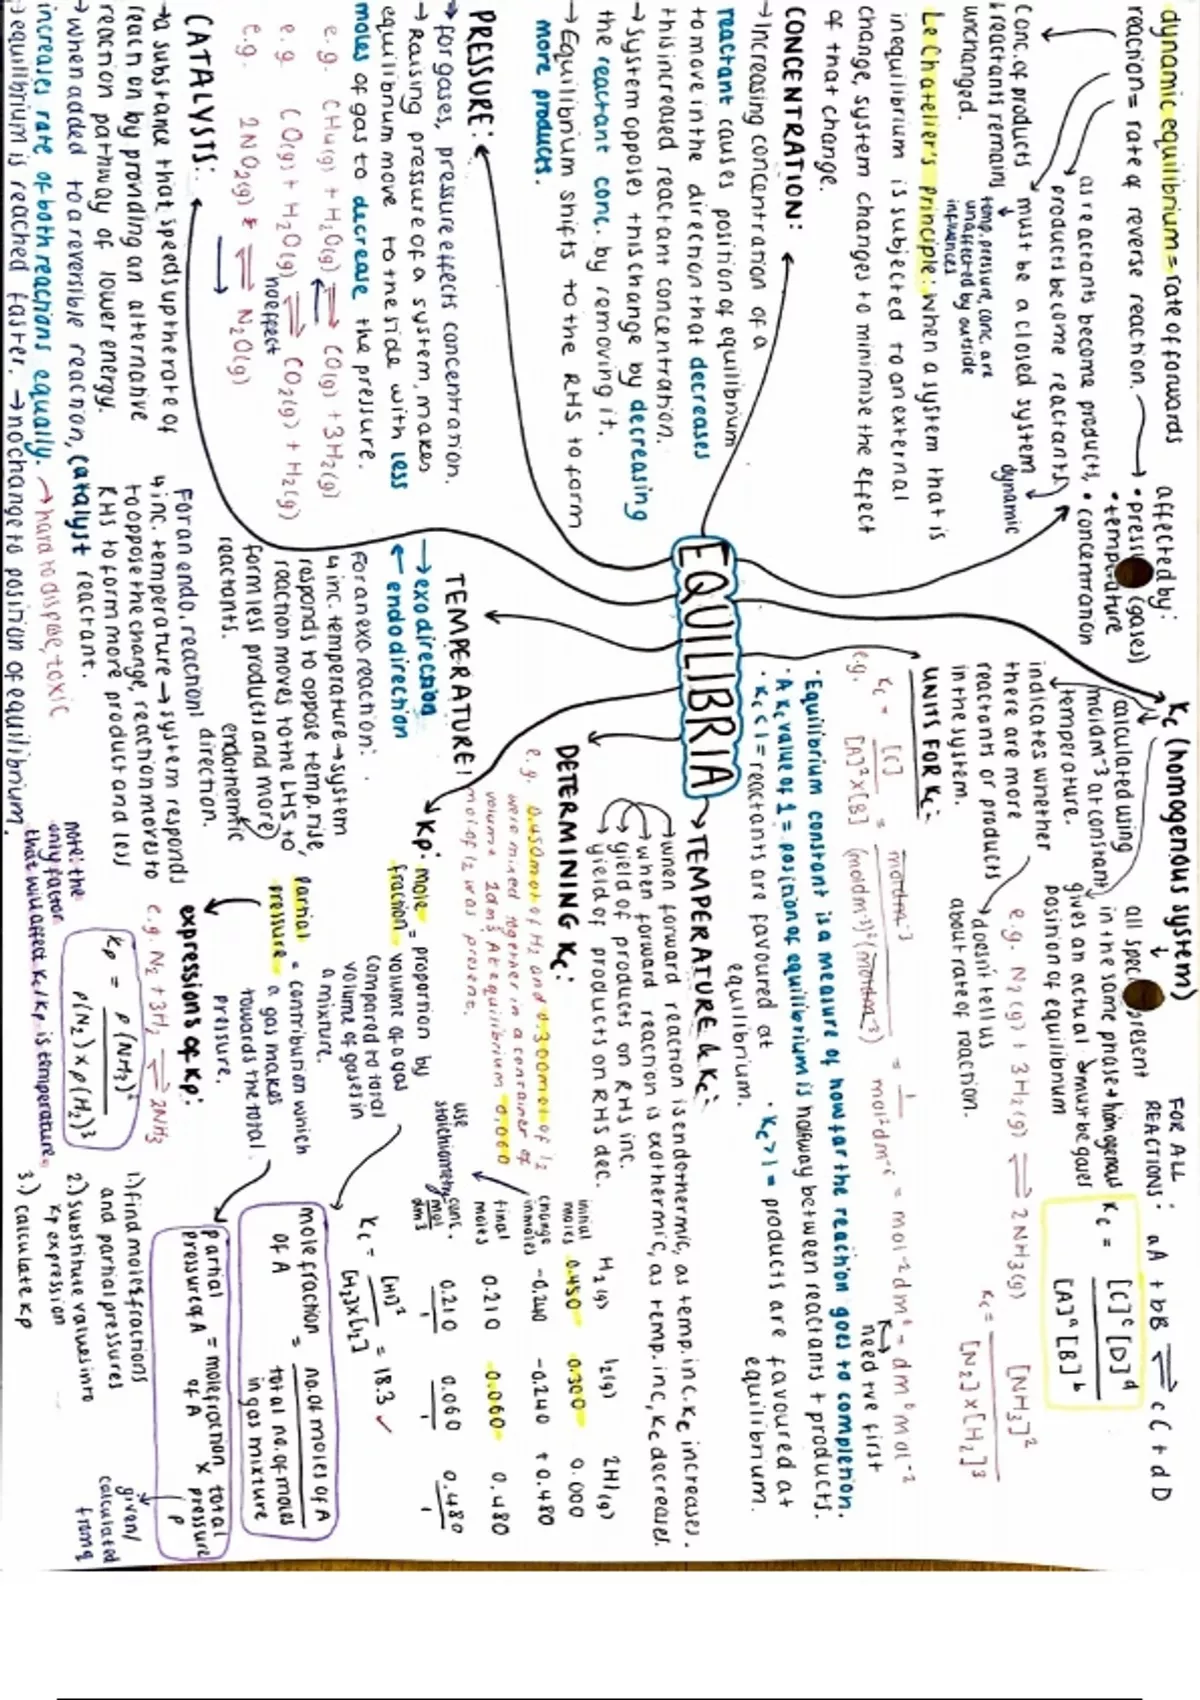 dynamic equilibrium = rate of forwards
reacrion = rate of reverse reaction.
affected by:
• (gases)
• temperature
• concentration
as reactants become products,
products become reactants
conc. of products
& reactants remains
unchanged.
must be a closed system
temp, pressure, conc. are
unaffected by outside
influences
dynamic
Le Chatelier's principle: when a system that is
in equilibrium is subjected to an external
change, system changes to minimise the effect
of that change.
CONCENTRATION:
→ Increasing concentration of a
reactant causes position of equilibrium
to move in the direction that decreases
this increased reactant concentration.
→ system opposes this change by decreasing
the reactant conc. by removing it.
→ Equilibrium shifts to the RHS to form
more products.
PRESSURE:
→ for gases, pressure effects concentration.
→ Raising pressure of a system, makes
equilibrium move to the side with less
moles of gas to decrease the pressure.
e.g. CH4(g) + H2O(g) ⇌ CO(g) + 3H2(g)
e.g CO(g) + H2O(g) ⇌ CO2(g) + H2(g)
no effect
e.g. 2NO2(g) ⇌ N2O(g)
CATALYSTS:
→ a substance that speeds up the rate of
reaction by providing an alternative
reaction pathway of lower energy.
→ when added to a reversible reaction, catalyst
increases rate of both reactions equally. → hard to dispose, toxic
→ equilibrium is reached faster. → no change to position of equilibrium.
EQUILIBRIA
TEMPERATURE:
→ exo direction
← endo direction
For an exo reaction:
↳ inc. temperature → system
responds to oppose temp. rise,
reaction moves to the LHS to
form less products and more
reactants.
endothermic
direction.
For an endo. reaction:
↳ inc. temperature → system responds
to oppose the change, reaction moves to
RHS to form more product and less
reactant.
Kc (homogenous system)
calculated using
moldm⁻³ at constant
temperature.
all present
in the same phase → homogenous
gives an actual & must be gases
position of equilibrium
indicates whether
there are more
reactants or products
in the system.
doesn't tell us
about rate of reaction.
FOR ALL
REACTIONS: aA + bB ⇌ cC + dD
Kc = [C]ᶜ [D]ᵈ / [A]ᵃ [B]ᵇ
e.g. N2(g) + 3H2(g) ⇌ 2NH3(g)
Kc = [NH3]² / [N2]×[H2]³
UNITS FOR Kc:
e.g. Kc = [C] / [A]²×[B] = moldm⁻³ / (moldm⁻³)²(moldm⁻³)
need +ve first
• Equilibrium constant is a measure of how far the reaction goes to completion.
• A Kc value of 1 = position of equilibrium is halfway between reactants + products.
• Kc < 1 = reactants are favoured at
equilibrium.
• Kc > 1 = products are favoured at
equilibrium.
TEMPERATURE & Kc:
→ when forward reaction is endothermic, as temp. inc. Kc increases.
→ when forward reaction is exothermic, as temp. inc, Kc decreases.
→ yield of products on RHS inc.
→ yield of products on RHS dec.
DETERMINING Kc:
e.g. 0.450mol of H2 and 0.300mol of I2
were mixed together in a container of
volume 2dm³. At equilibrium 0.060
mol of I2 was present.
H2(g) I2(g) 2HI(g)
initial
moles 0.450 0.300 0.000
change
in moles -0.240 -0.240 +0.480
final
moles 0.210 0.060 0.480
use
stoichiometry
conc.
mol
dm³ 0.210/1 0.060/1 0.480/1
Kc = [HI]² / [H2]×[I2] = 18.3 ✓
Kp:
mole
fraction = proportion by
volume of a gas
compared to total
volume of gases in
a mixture.
partial
pressure = contribution which
a gas makes
towards the total
pressure.
mole fraction
of A = no. of moles of A / total no. of moles
in gas mixture
partial
pressure of A = mole fraction
of A × total
pressure
P
given/
calculated
from q
expressions of Kp:
e.g. N2 + 3H2 ⇌ 2NH3
Kp = p(NH3)² / p(N2) × p(H2)³
1.) find mole fractions
and partial pressures
2.) substitute values into
Kp expression
3.) calculate Kp
note: the
only factor
that will affect Kc/Kp is temperature.